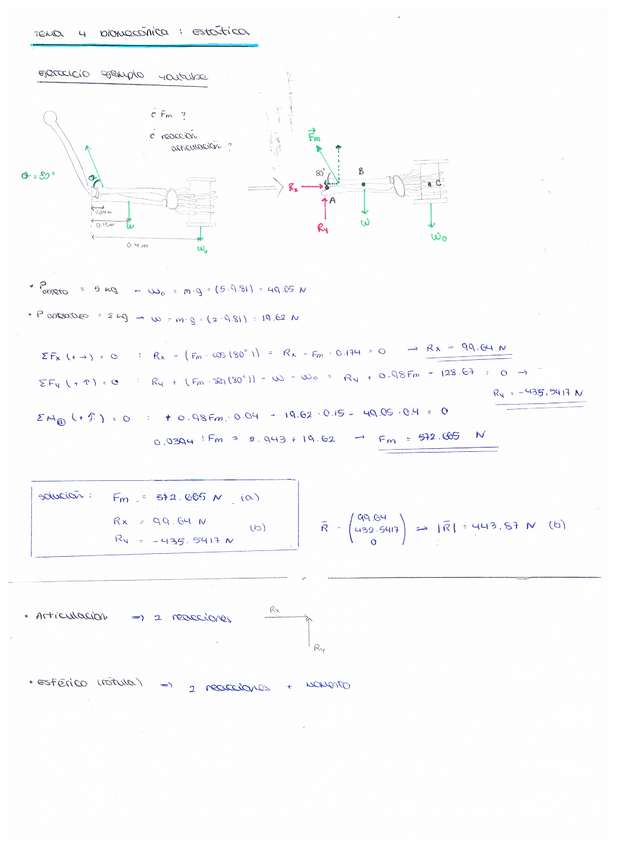 TEMA 4 biomecánica : estática
ejercicio ejemplo youtube
¿ Fm ?
¿ reacción
articulación ?
θ = 80°
θ
0.04m
0.15m
W
0.4 m
W₀
Fm
80°
Rx
A
B
C
Ry
W
W₀
• Pobjeto = 5 kg → W₀ = m·g = (5·9.81) = 49.05 N
• P antebrazo = 2 kg → W = m·g = (2·9.81) = 19.62 N
ΣFx (+→) = 0 : Rx - (Fm·cos(80°)) = Rx - Fm·0.174 = 0 → Rx = 99.64 N
ΣFy (+↑) = 0 : Ry + (Fm·sen(80°)) - W - W₀ = Ry + 0.98Fm - 128.67 = 0 →
Ry = -435,5417 N
(+↑) = 0 : + 0.98Fm·0.04 - 19.62·0.15 - 49.05·0.4 = 0
0.0394·Fm = 2.943 + 19.62 → Fm = 572.665 N
solución : Fm = 572.665 N (a)
Rx = 99.64 N
(b)
Ry = -435.5417 N
R = (99.64 432.5417 0) → |R| = 443,87 N (b)
• Articulación ⇒ 2 reacciones
Rx
Ry
• esférico (rótula) ⇒ 2 reacciones + momento